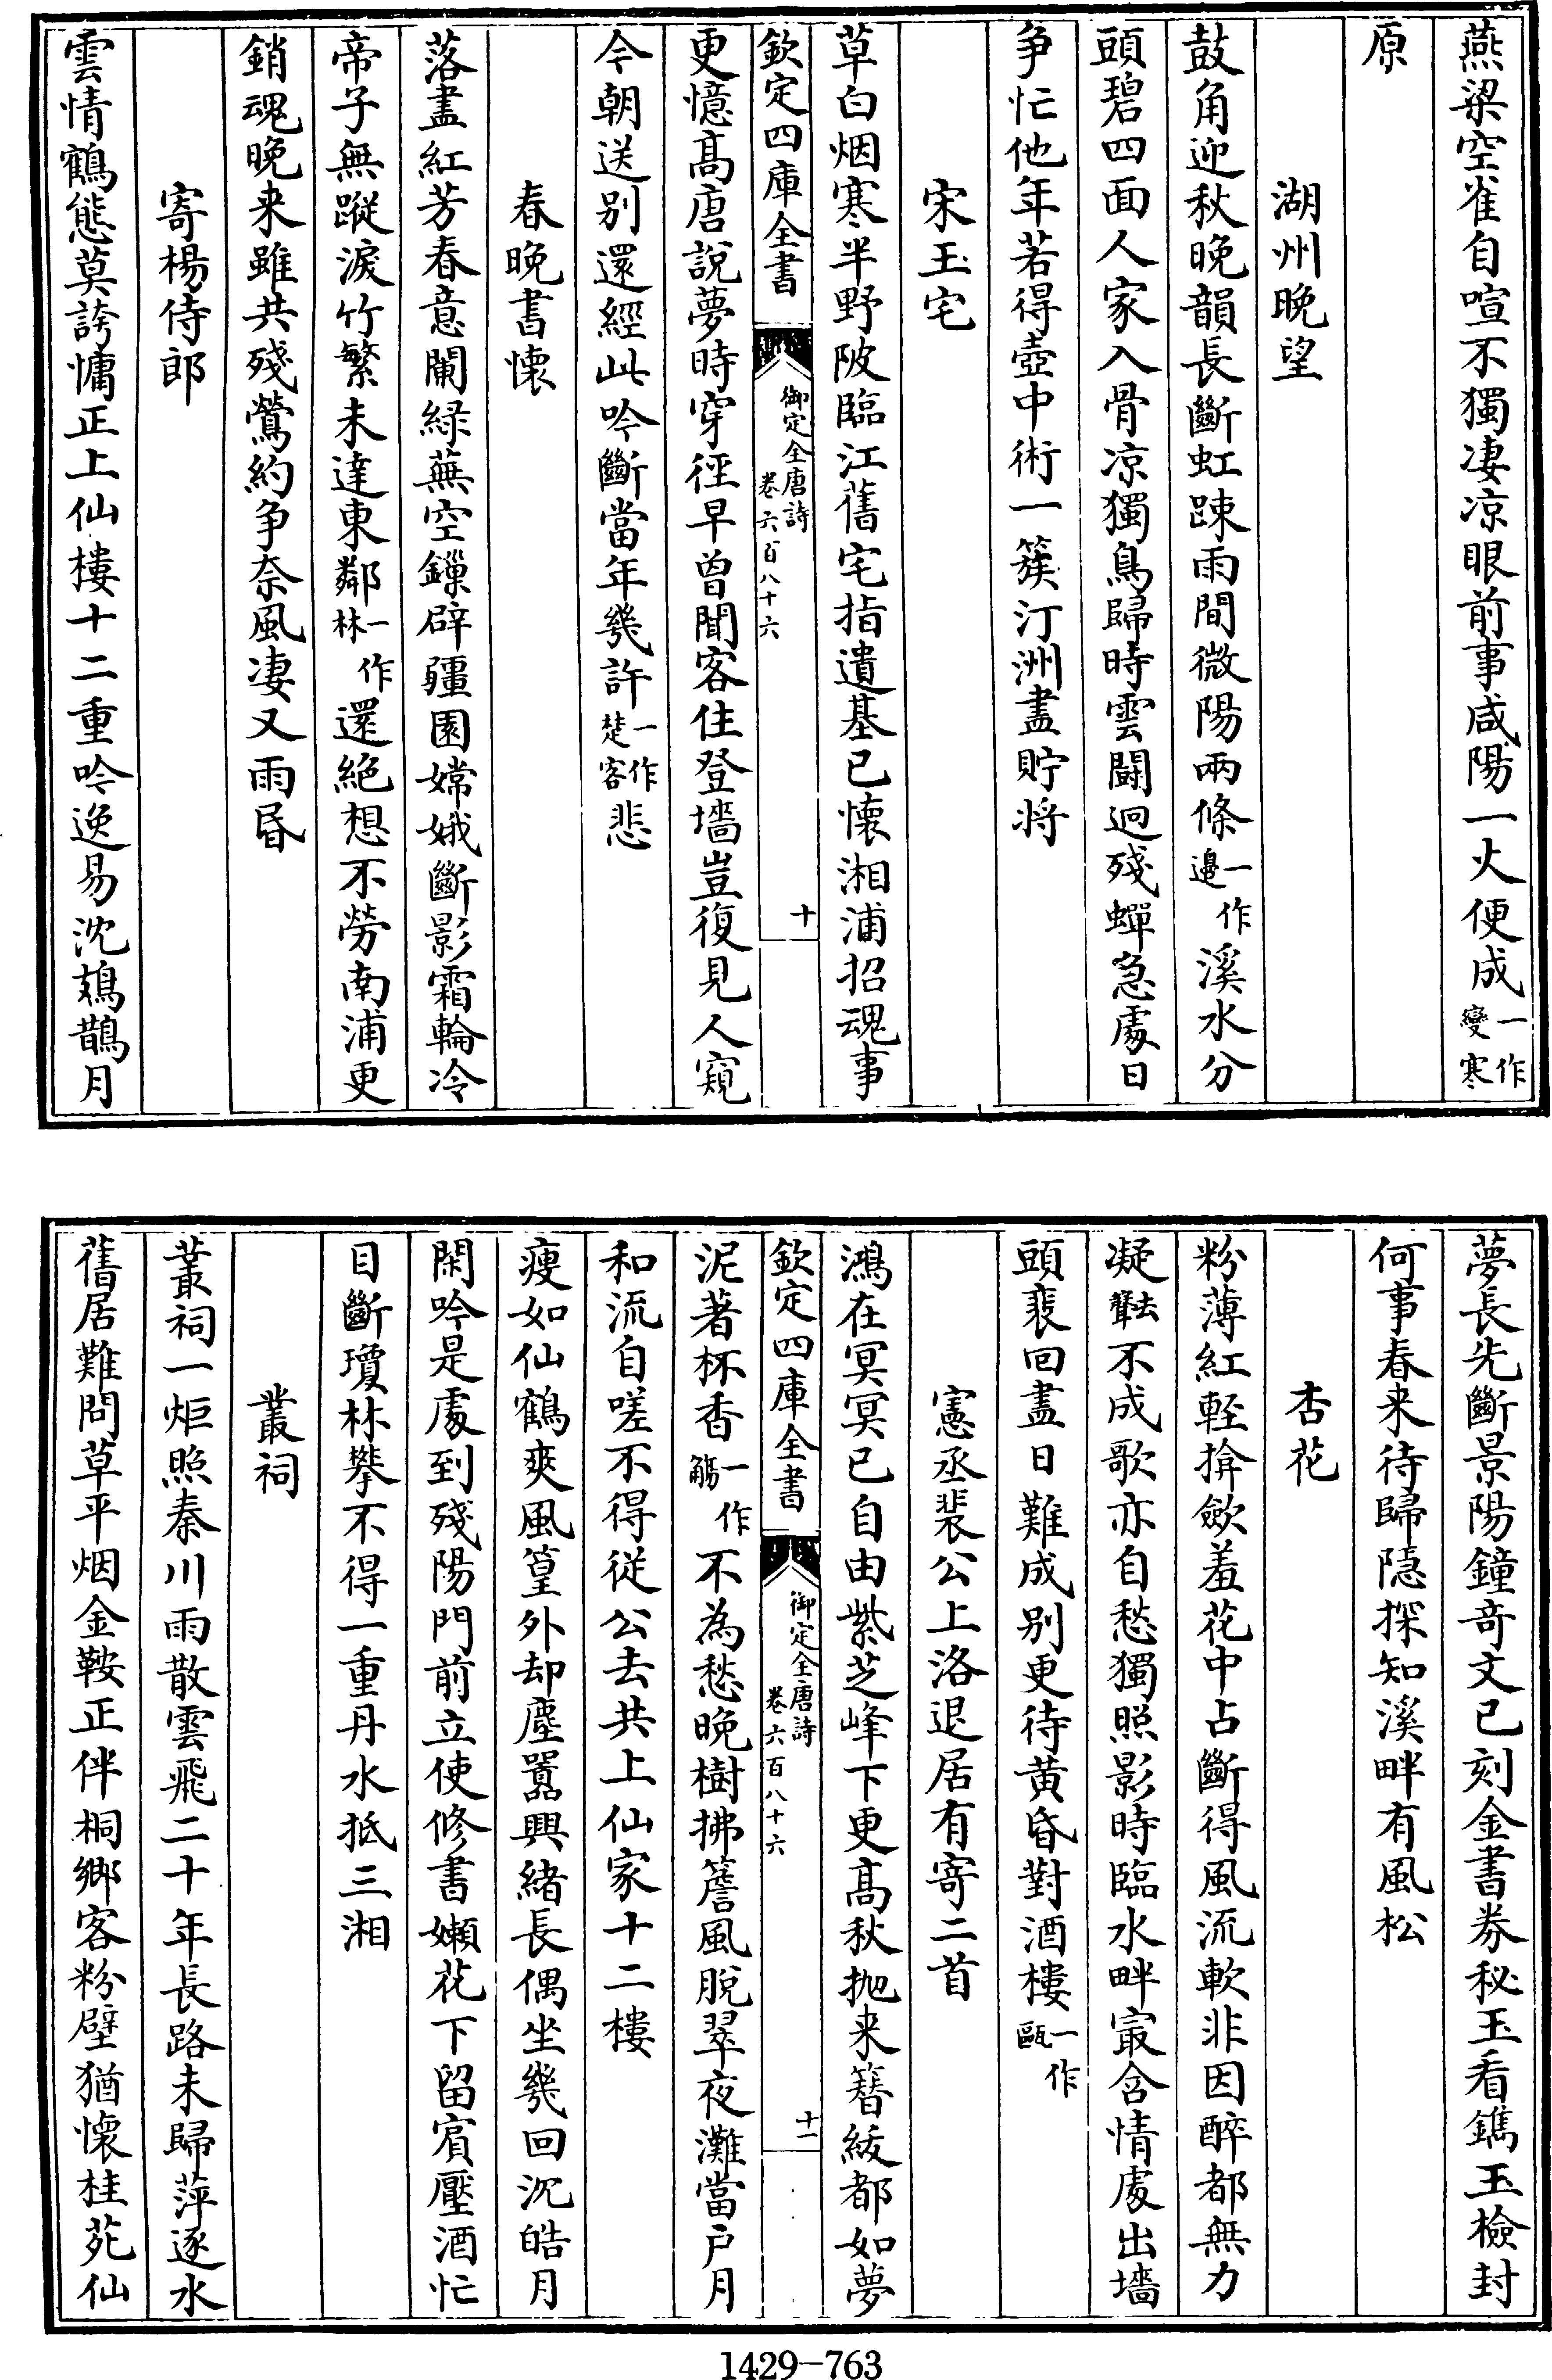 燕梁空雀自喧不獨凄凉眼前事咸陽一火便成一作變寒
原
湖州晚望
鼓角迎秋晚韻長斷虹踈雨間微陽兩條一作邊溪水分
頭碧四面人家入骨凉獨鳥歸時雲鬬迥殘蟬急處日
争忙他年若得壺中術一簇汀洲盡貯将
宋玉宅
草白烟寒半野陂臨江舊宅指遺基已懷湘浦招魂事
欽定四庫全書
御定全唐詩
卷六百八十六
十
更憶髙唐説夢時穿徑早曾聞客住登墻豈復見人窺
今朝送别還經此吟斷當年幾許一作楚客悲
春晚書懷
落盡紅芳春意闌緑蕪空鏁辟疆園嫦娥斷影霜輪冷
帝子無蹤淚竹繁未達東鄰一作林還絶想不勞南浦更
銷魂晚来雖共殘鶯約争奈風凄又雨昬
寄楊侍郎
雲情鶴態莫誇慵正上仙樓十二重吟逸易沈鳷鵲月
夢長先斷景陽鐘竒文已刻金書券秘玉看鐫玉檢封
何事春来待歸隠探知溪畔有風松
杏花
粉薄紅輕揜歛羞花中占斷得風流軟非因醉都無力
凝去聲不成歌亦自愁獨照影時臨水畔㝡含情處出墻
頭裴回盡日難成别更待黄昏對酒樓一作甌
憲丞裴公上洛退居有寄二首
鴻在冥冥已自由紫芝峰下更髙秋抛来簪紱都如夢
欽定四庫全書
御定全唐詩
卷六百八十六
十一
泥著杯香一作觴不為愁晚樹拂簷風脱翠夜灘當户月
和流自嗟不得從公去共上仙家十二樓
瘦如仙鶴爽風篁外却塵囂興緒長偶坐幾回沉皓月
閑吟是處到殘陽門前立使修書嬾花下留賔壓酒忙
目斷瓊林攀不得一重丹水抵三湘
叢祠
叢祠一炬照秦川雨散雲飛二十年長路未歸萍逐水
舊居難問草平烟金鞍正伴桐鄉客粉壁猶懷桂苑仙
1429-763